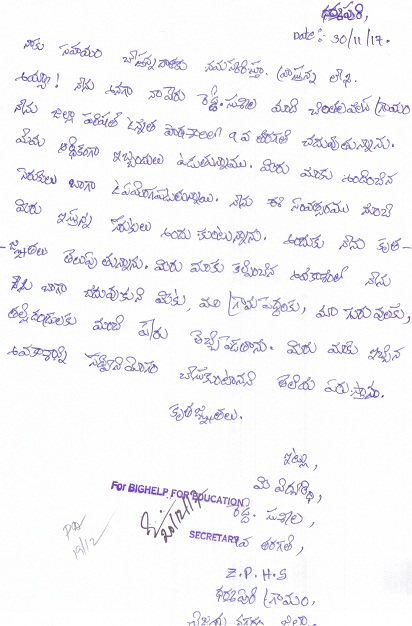 ధర్మపురి,
Date :- 30/11/17.
నాకు సహాయం చేస్తున్న దాతకు నమస్కరిస్తూ వ్రాస్తున్న లేఖ.
అయ్యా! నేను అనగా నా పేరు రెడ్డి. సుశీల మాది గ్రామం
నేను జిల్లా పరిషత్ ఉన్నత పాఠశాలలో 9వ తరగతి చదువుతున్నాను.
మేము ఆర్థికంగా ఇబ్బందులు పడుతున్నాము. మీరు మాకు అందించిన
సరుకులు బాగా ఉపయోగపడుతున్నాయి. నేను ఈ సంవత్సరము నుంచి
మీరు ఇస్తున్న సరుకులు అందుకుంటున్నాను. అందుకు నేను కృత-
జ్ఞతలు తెలుపుతున్నాను. మీరు మాకు కల్పించిన అవకాశంతో నేను
బాగా చదువుకుని మీకు, మా గ్రామ పెద్దలకు, మా గురువులకు,
తల్లిదండ్రులకు మంచి పేరు తెచ్చిపెడతాను. మీరు మాకు ఇచ్చిన
అవకాశాన్ని సద్వినియోగం చేసుకుంటానని తెలియపరుస్తాను.
కృతజ్ఞతలు.
ఇట్లు,
మీ విద్యార్థి,
రెడ్డి. సుశీల,
9వ తరగతి,
Z.P.H.S
ధర్మపురి గ్రామం,
విజయనగరం జిల్లా.
For BIGHELP FOR EDUCATION
20/12/17
SECRETARY
19/12